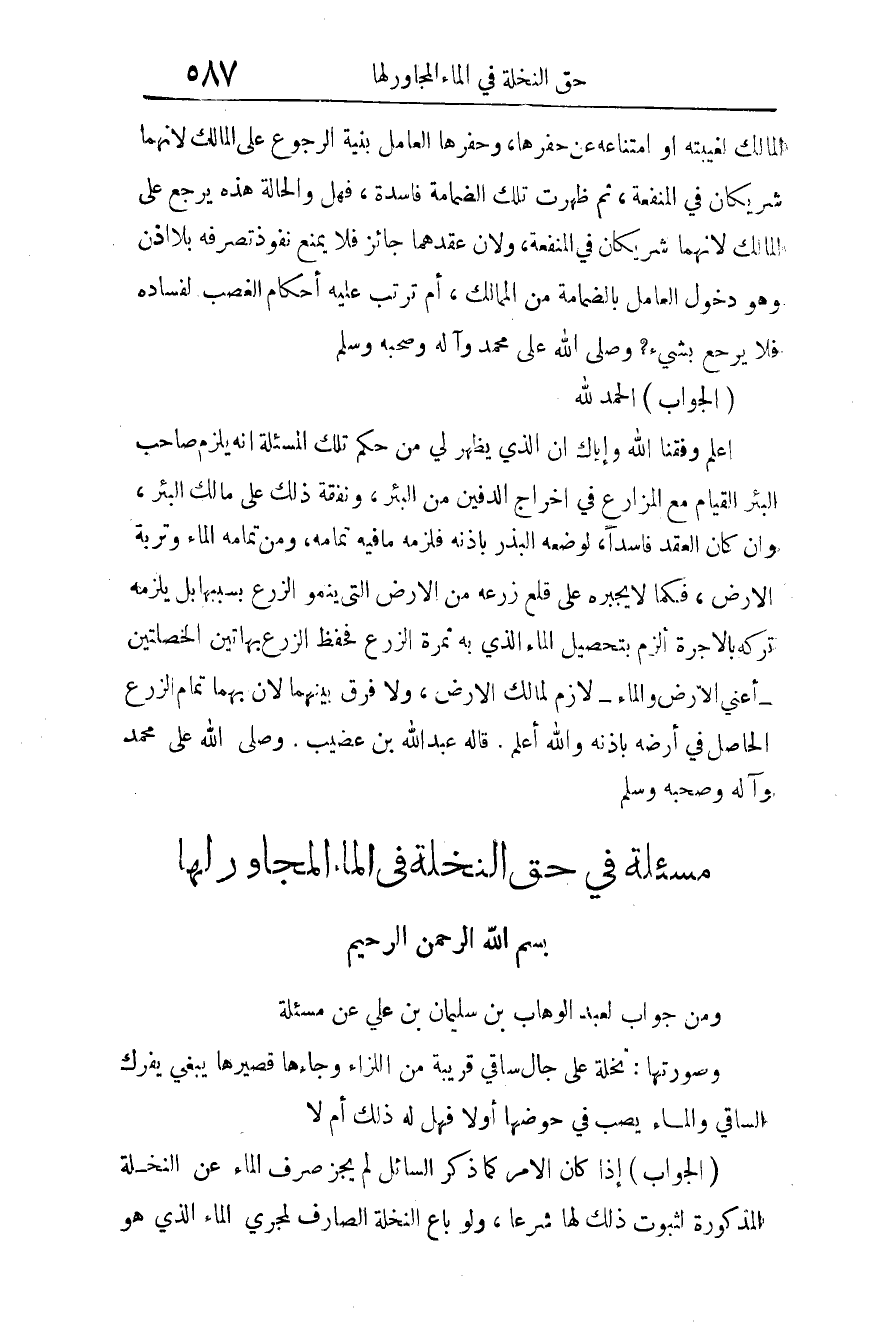 حق النخلة في الماء المجاور لها ٥٨٧
المالك لغيبته او امتناعه عن حفرها، وحفرها العامل بنية الرجوع على المالك لانهما
شريكان في المنفعة ، ثم ظهرت تلك الضمامة فاسدة ، فهل والحالة هذه يرجع على
المالك لانهما شريكان في المنفعة، ولان عقدهما جائز فلا يمنع نفوذ تصرفه بلا اذن
وهو دخول العامل بالضمامة من المالك ، أم ترتب عليه أحكام الغصب لفساده
فلا يرجع بشيء؟ وصلى الله على محمد وآله وصحبه وسلم
( الجواب ) الحمد لله
اعلم وفقنا الله وإياك ان الذي يظهر لي من حكم تلك المسئلة انه يلزم صاحب
البئر القيام مع المزارع في اخراج الدفين من البئر ، ونفقة ذلك على مالك البئر ،
وان كان العقد فاسداً، لوضعه البذر باذنه فلزمه مافيه تمامه، ومن تمامه الماء وتربة
الارض ، فكما لايجبره على قلع زرعه من الارض التي ينمو الزرع بسببها بل يلزمه
تركه بالاجرة ألزم بتحصيل الماء الذي به ثمرة الزرع فحفظ الزرع بهاتين الخصلتين
_ أعني الارض والماء _ لازم لمالك الارض ، ولا فرق بينهما لان بهما تمام الزرع
الحاصل في أرضه باذنه والله أعلم . قاله عبدالله بن عضيب . وصلى الله على محمد
وآله وصحبه وسلم
مسئلة في حق النخلة في الماء المجاور لها
بسم الله الرحمن الرحيم
ومن جواب لعبد الوهاب بن سليمان بن علي عن مسئلة
وصورتها : نخلة على جال ساقي قريبة من اللزاء وجاءها قصيرها يبغي يفرك
الساقي والمـاء يصب في حوضها أولا فهل له ذلك أم لا
( الجواب ) إذا كان الامر كما ذكر السائل لم يجز صرف الماء عن النخـلة
المذكورة لثبوت ذلك لها شرعا ، ولو باع النخلة الصارف لمجري الماء الذي هو